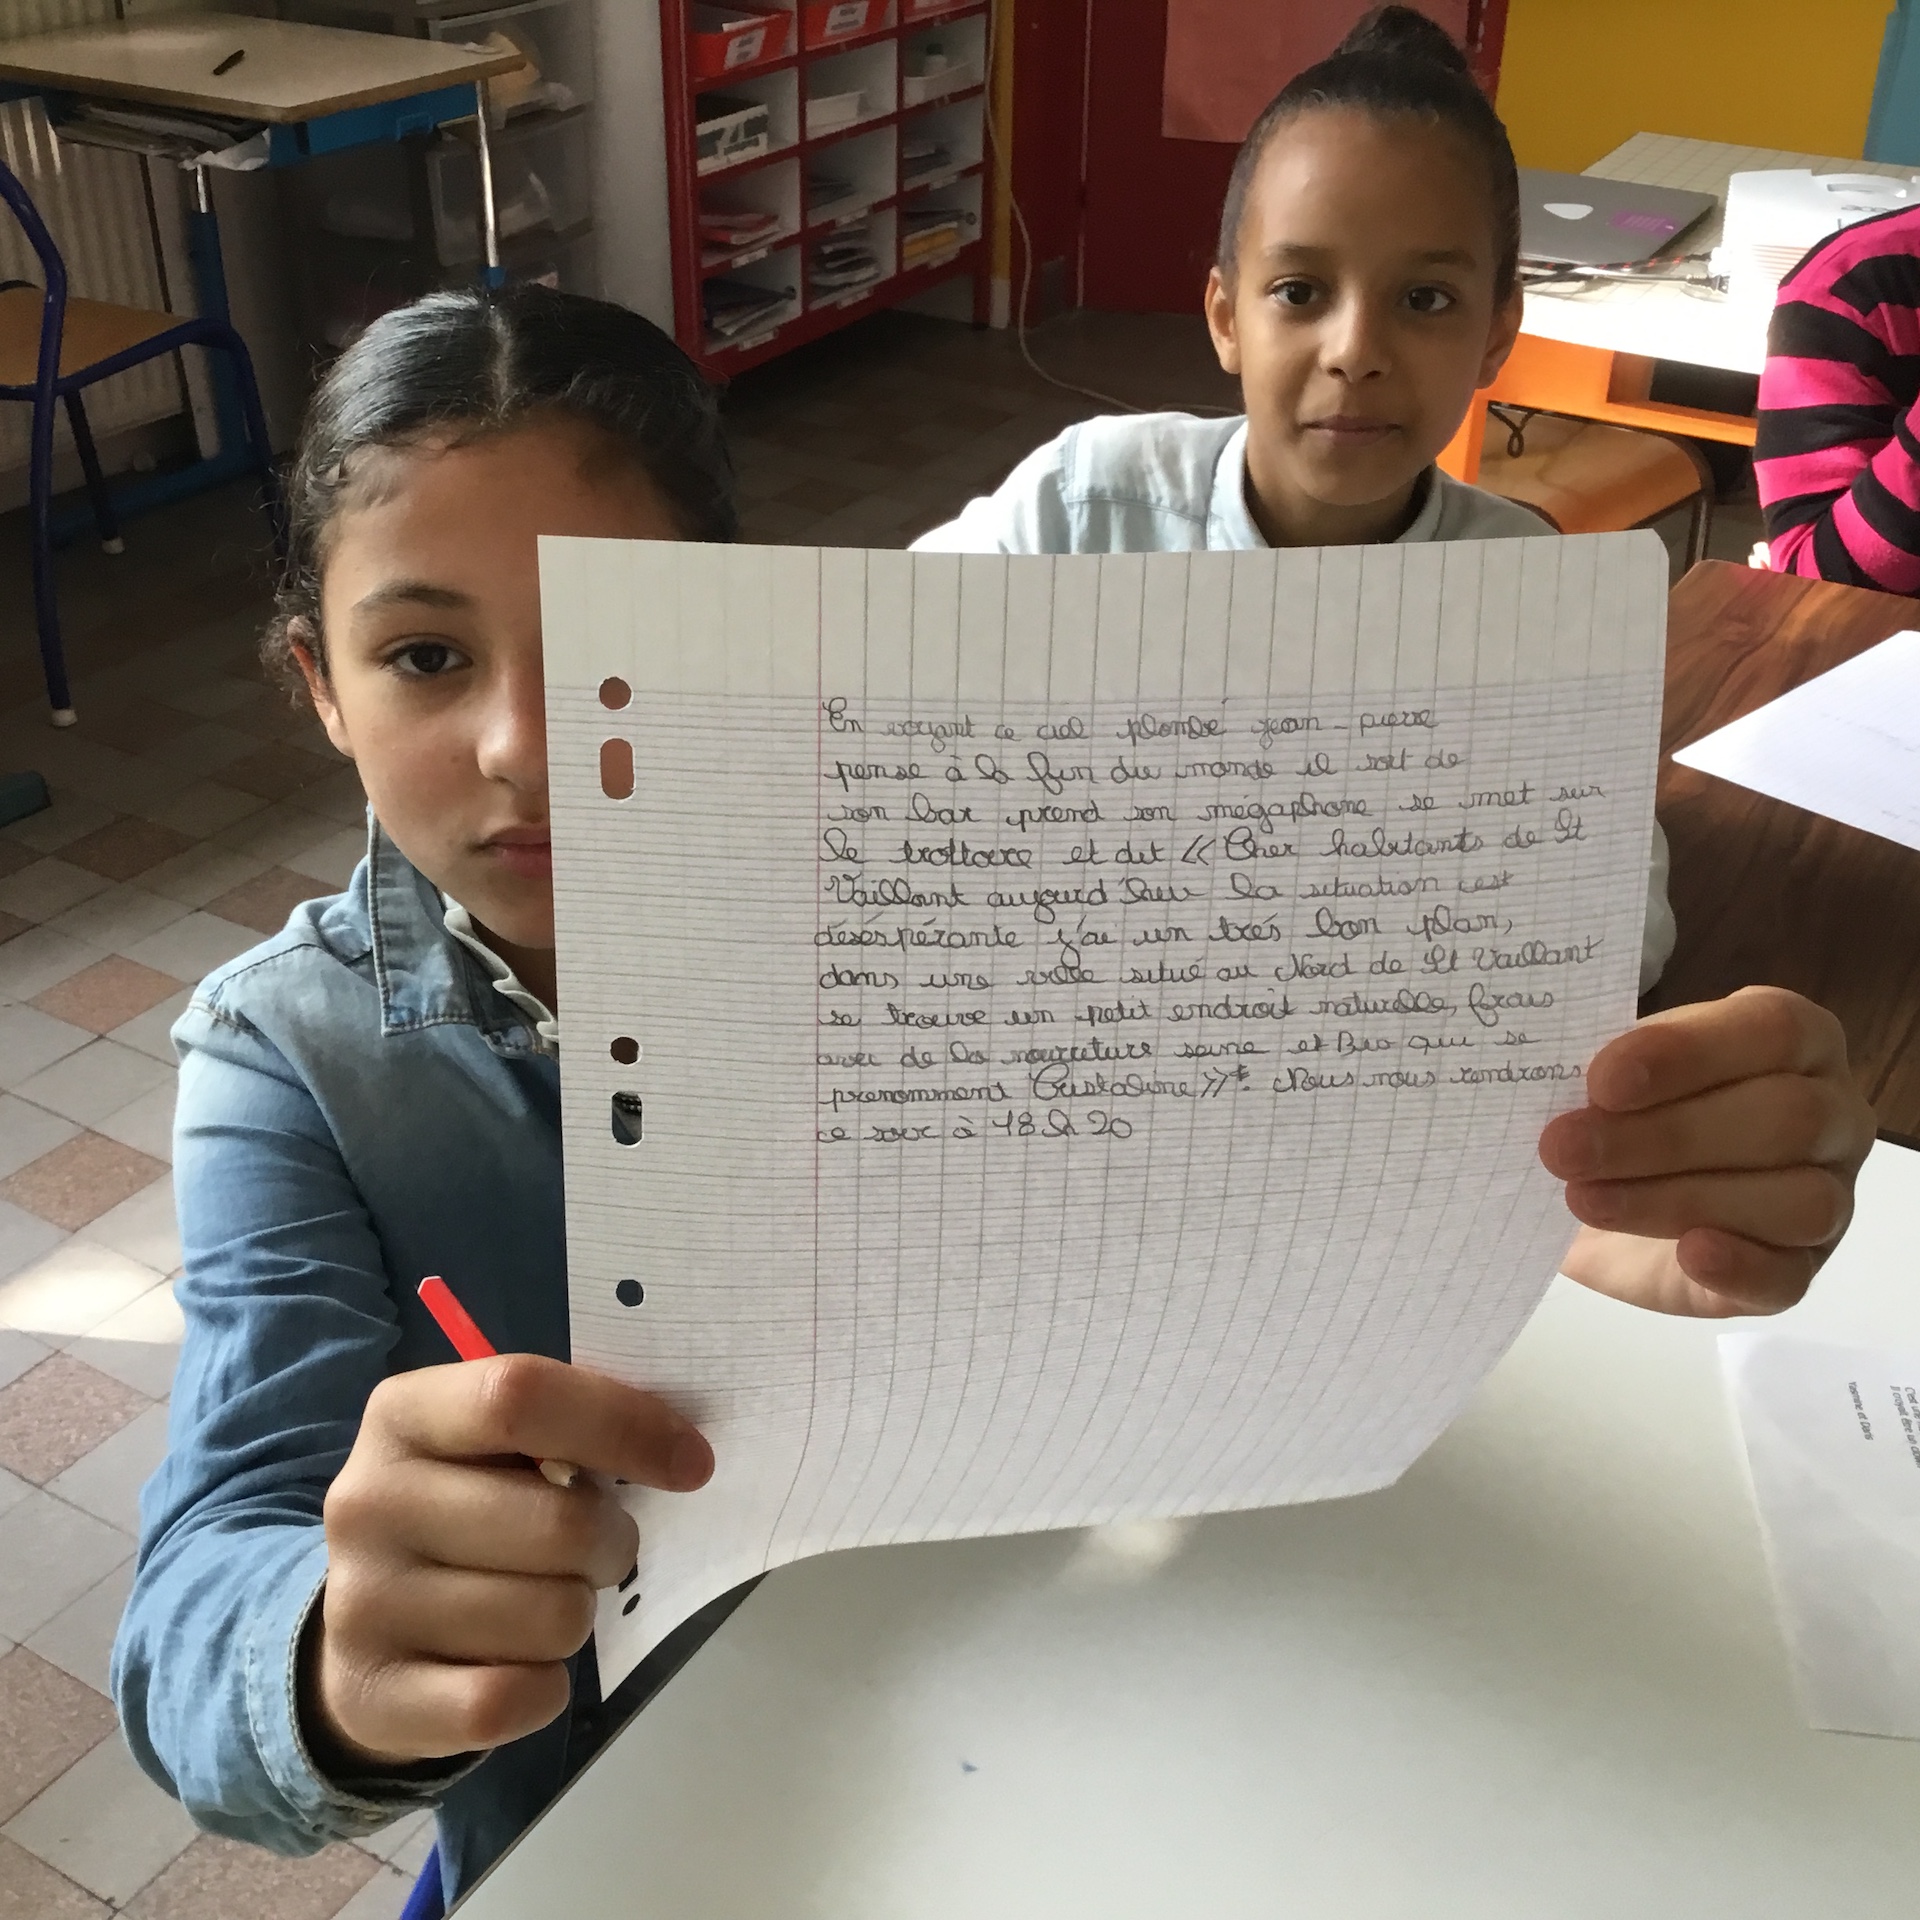 En voyant ce ciel plombé jean-pierre
pense à la fin du monde il sort de
son bar prend son mégaphone se met sur
le trottoire et dit « Cher habitants de St
Vaillant aujourd'hui la situation est
désespérante j'ai un trés bon plan,
dans une ville situé au Nord de St Vaillant
se trouve un petit endroit naturelle, frais
avec de la nourriture saine et Bio qui se
prenomment Cristaline »*. Nous nous rendrons
ce soir à 18 h 20
C'est une
Il croyait être un
Yasmine et Doris